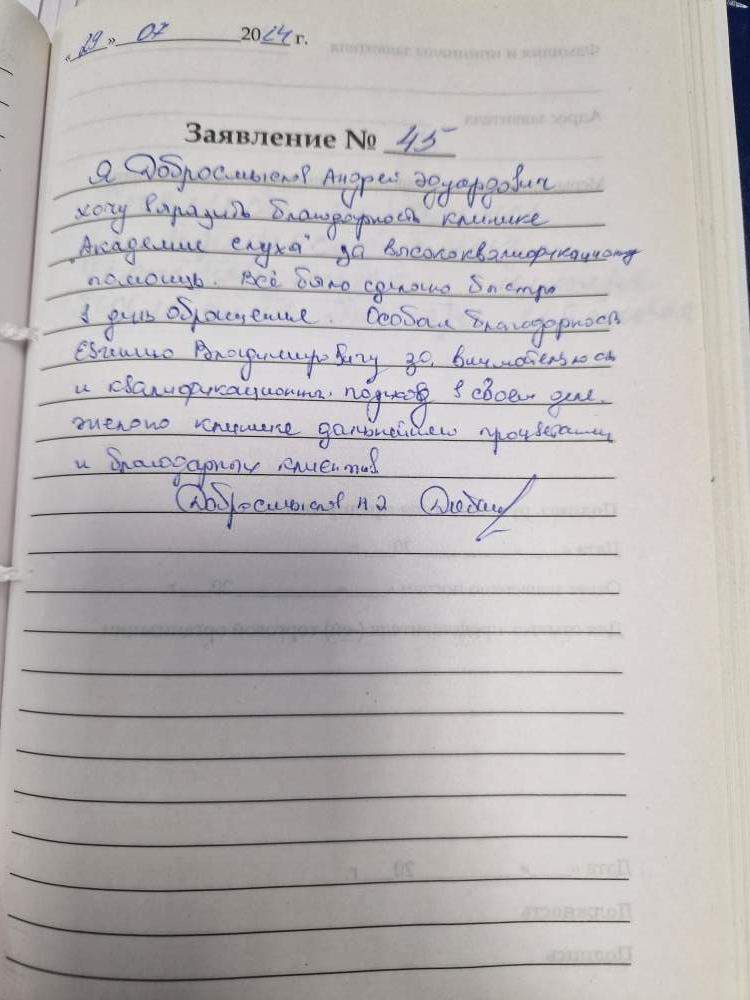 «29» 07 2024 г.
Заявление № 45
Я Добросмыслов Андрей Эдуардович
хочу выразить благодарность клинике
"Академие слуха" за высококвалификационую
помощь. Всё было сделано быстро
в день обращение. Особая благодарность
Евгению Владимировичу за внимательность
и квалификационны. подход в своем деле.
желаю клинике дальнейшего процветания
и благодарных клиентов
Добросмыслов А Э